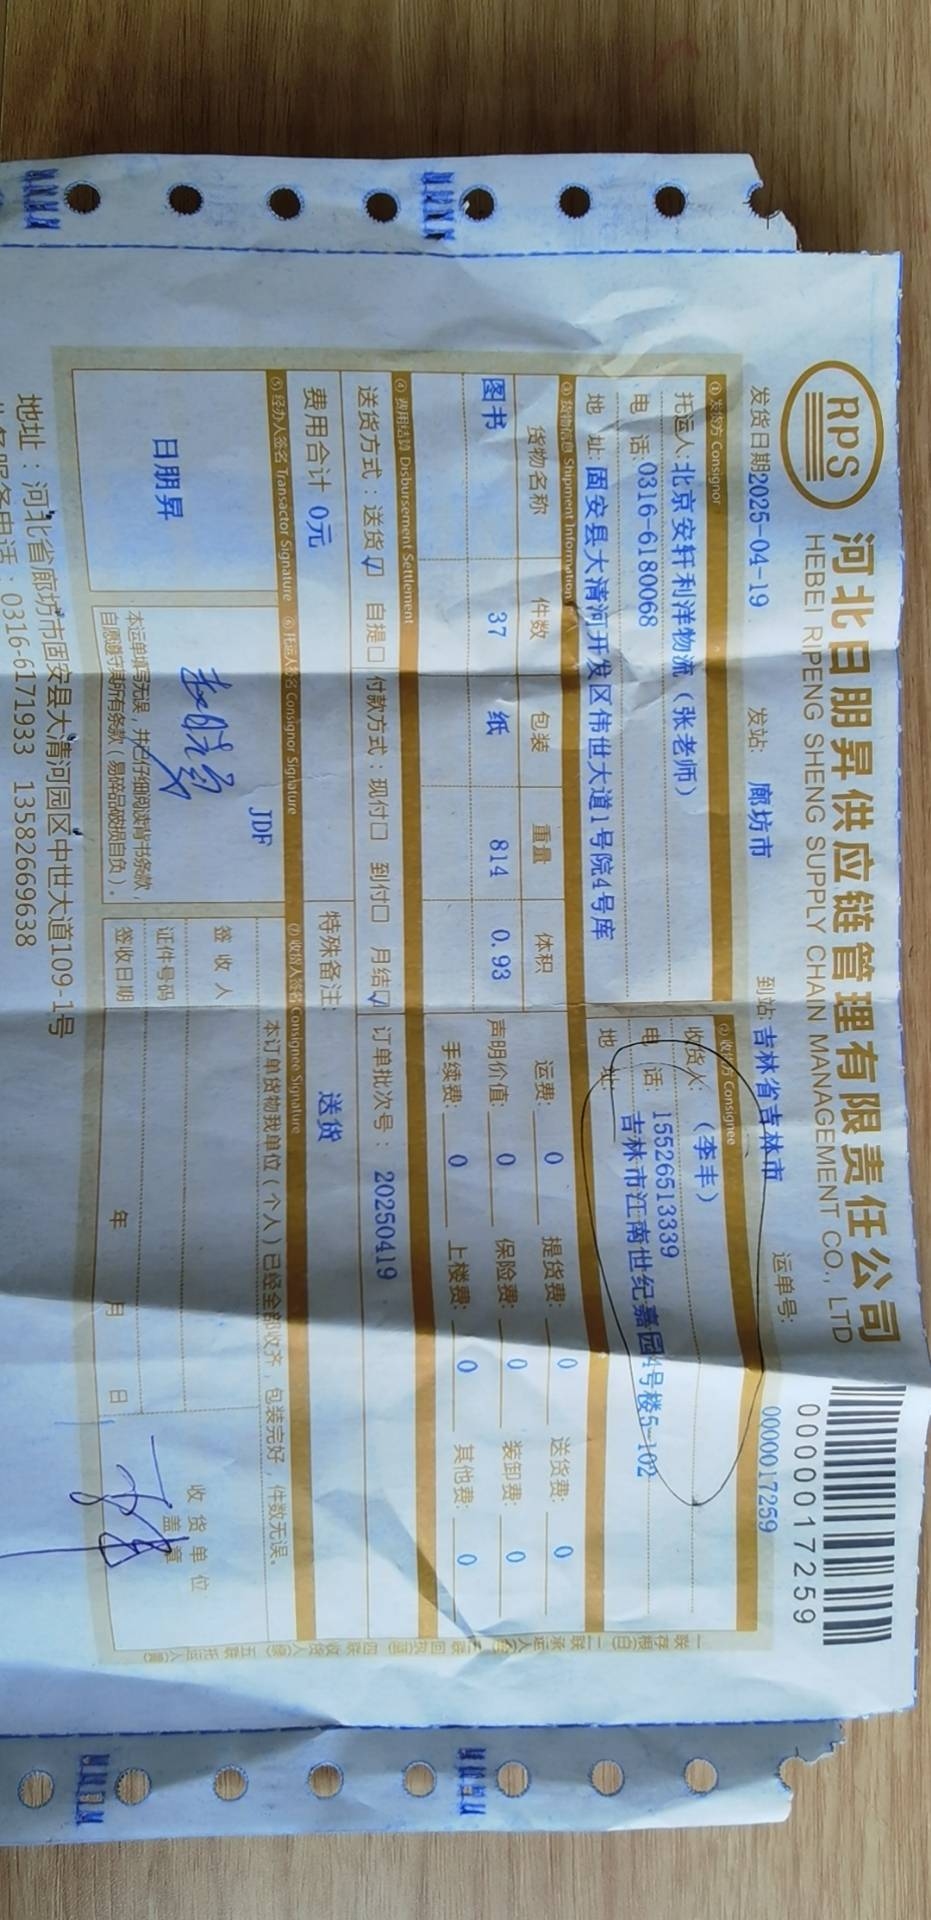 RPS
河北日朋昇供应链管理有限责任公司
HEBEI RIPENG SHENG SUPPLY CHAIN MANAGEMENT CO., LTD
0000017259
发货日期2025-04-19 发站: 廊坊市 到站:吉林省吉林市 运单号: 0000017259
①发货方 Consignor
托运人:北京安轩利洋物流（张老师）
电 话:0316-6180068
地 址:固安县大清河开发区伟世大道1号院4号库
②收货方 Consignee
收货人: （李丰）
电 话: 15526513339
地 址: 吉林市江南世纪嘉园4号楼5-102
③货物信息 Shipment Information
货物名称 件数 包装 重量 体积
图书 37 纸 814 0.93
运费: 0 提货费: 0 送货费: 0
声明价值: 0 保险费: 0 装卸费: 0
手续费: 0 上楼费: 0 其他费: 0
④费用结算 Disbursement Settlement
送货方式：送货☑ 自提□ 付款方式：现付□ 到付□ 月结☑ 订单批次号：20250419
费用合计 0元 特殊备注: 送货
⑤经办人签名 Transactor Signature
日朋昇
⑥托运人签名 Consignor Signature
JDF
本运单填写无误，并已仔细阅读背书条款，
自愿遵守其所有条款（易碎品破损自负）。
⑦收货人签名 Consignee Signature
本订单货物我单位（个人）已经全部收齐，包装完好，件数无误。
签 收 人
证件号码
签收日期 年 月 日
收货单位
盖章
地址：河北省廊坊市固安县大清河园区中世大道109-1号
服务电话：0316-6171933 13582669638